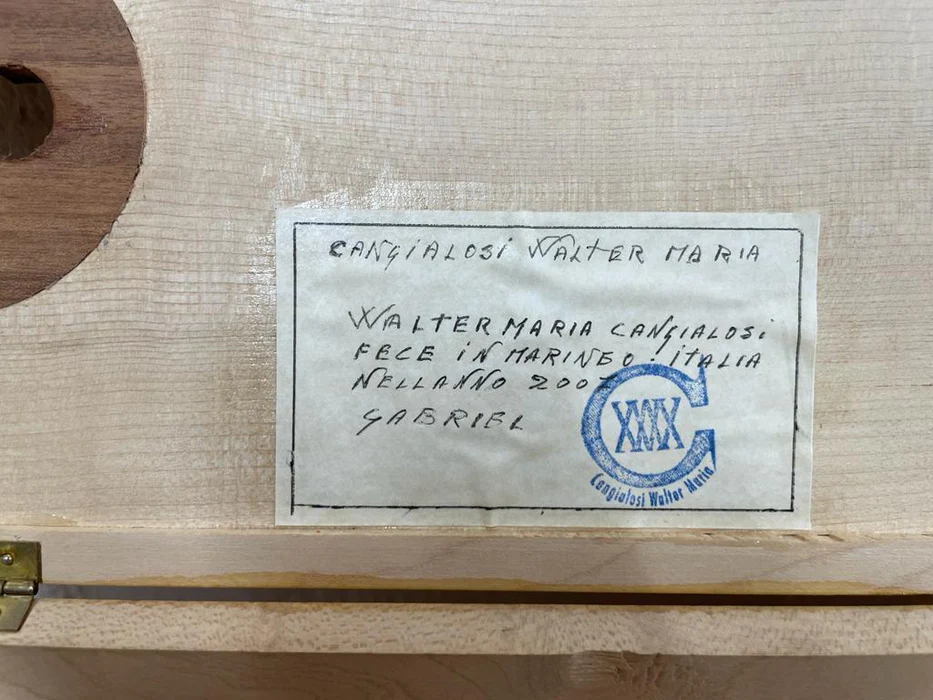 CANGIALOSI WALTER MARIA
WALTER MARIA CANGIALOSI
FECE IN MARINEO. ITALIA
NELLANNO 2007
GABRIEL
Cangialosi Walter Maria